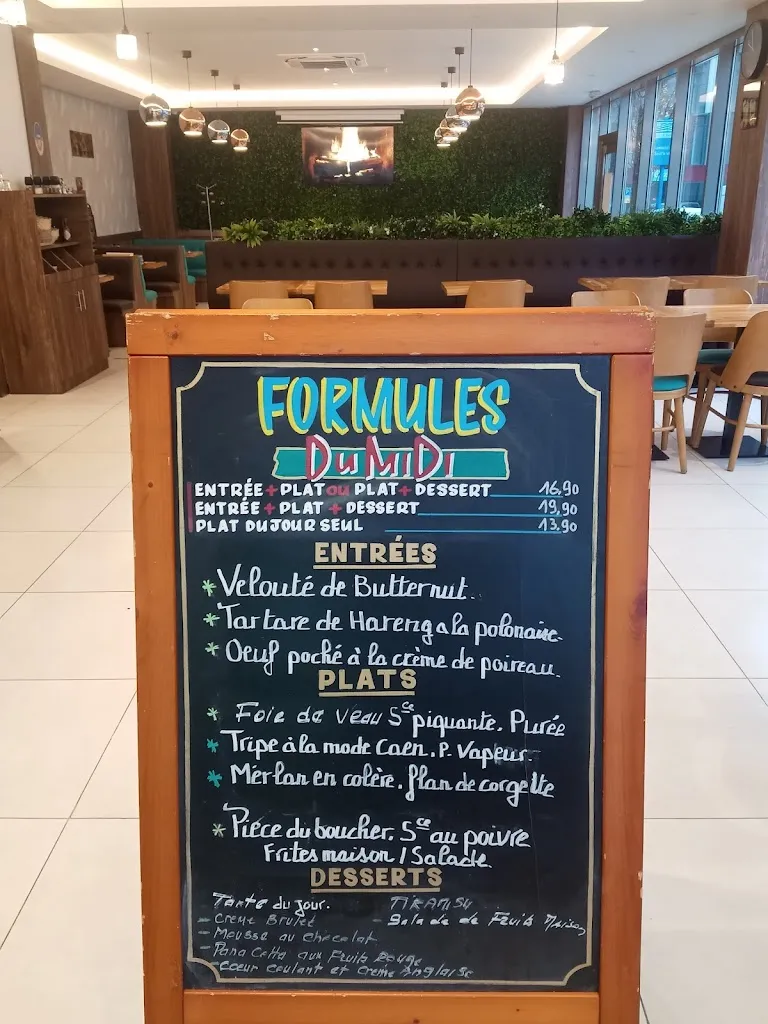 FORMULES
Du MiDi
ENTRÉE + PLAT OU PLAT + DESSERT 16,90
ENTRÉE + PLAT + DESSERT 19,90
PLAT DU JOUR SEUL 13,90
ENTRÉES
* Velouté de Butternut.
* Tartare de Hareng a la polonaise
* Oeuf poché à la crème de poireau.
PLATS
* Foie de veau Sce piquante. Purée
* Tripe à la mode Caen. P. Vapeur.
* Merlan en colère. flan de corgette
* Pièce du boucher. Sce au poivre
Frites maison / Salade
DESSERTS
Tarte du jour. TIRAMISU
- Creme Brulet - Salade de Fruits Maison
- Mousse au chocolat
- Pana Cotta aux Fruits Rouge
- Coeur coulant et Creme Anglaise